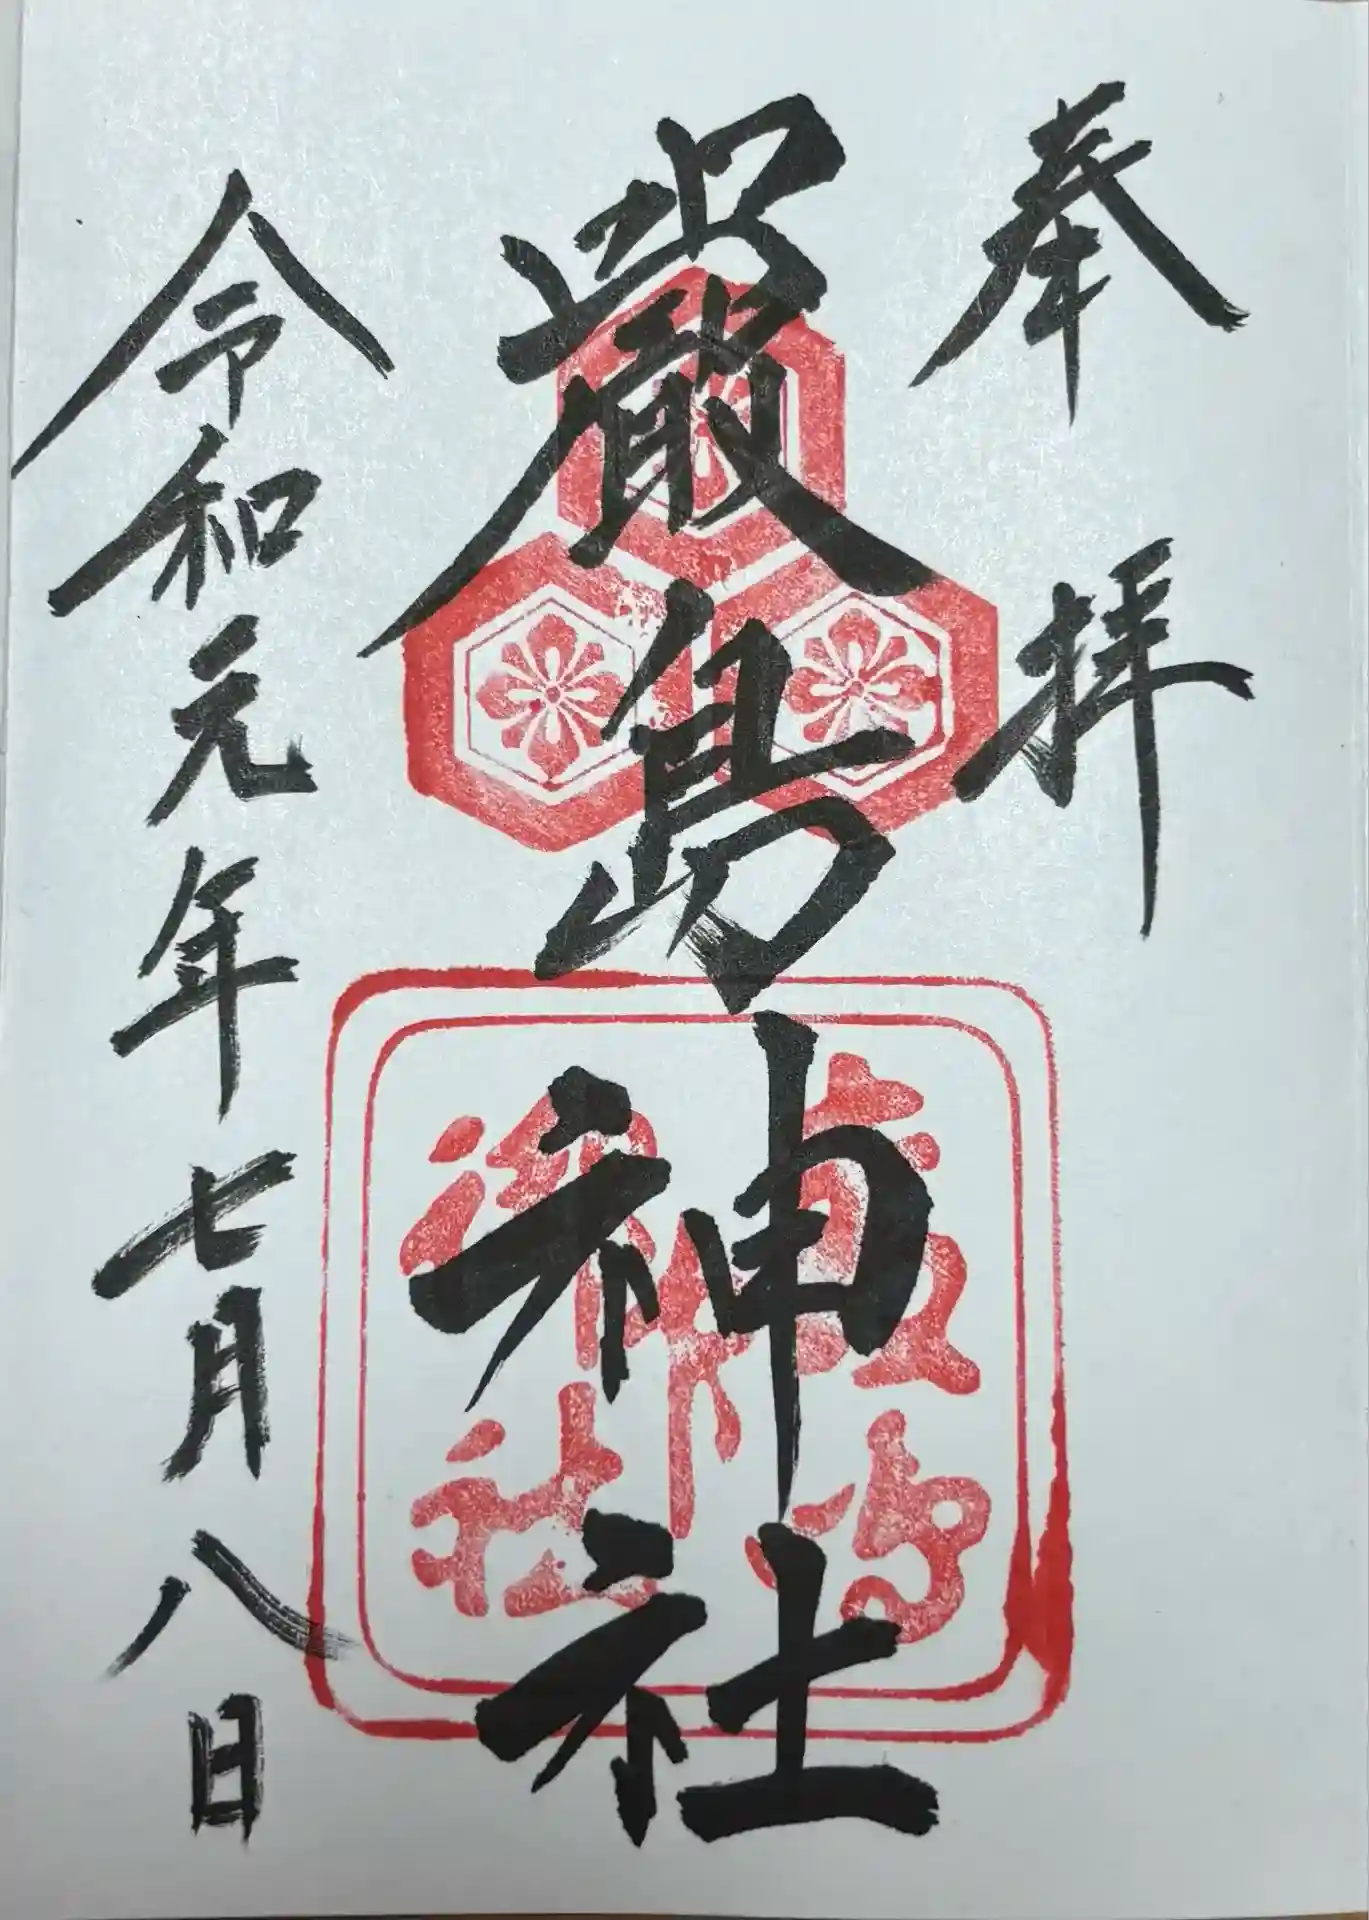 奉拝
嚴島神社
令和元年七月八日
嚴島
神社